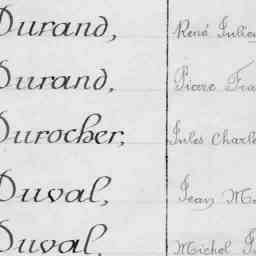 Durand, René Julien
Durand, Pierre Fra
Durocher, Jules Charle
Duval, Jean Ma
Duval, Michel